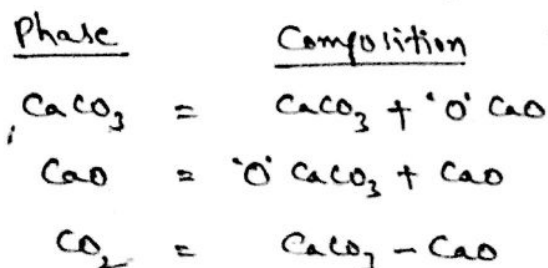 Phase Composition
CaCO₃ = CaCO₃ + 'O' CaO
CaO = 'O' CaCO₃ + CaO
CO₂ = CaCO₃ - CaO